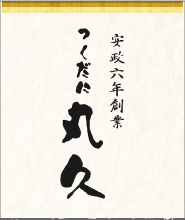 安政六年創業
つくだに
丸久